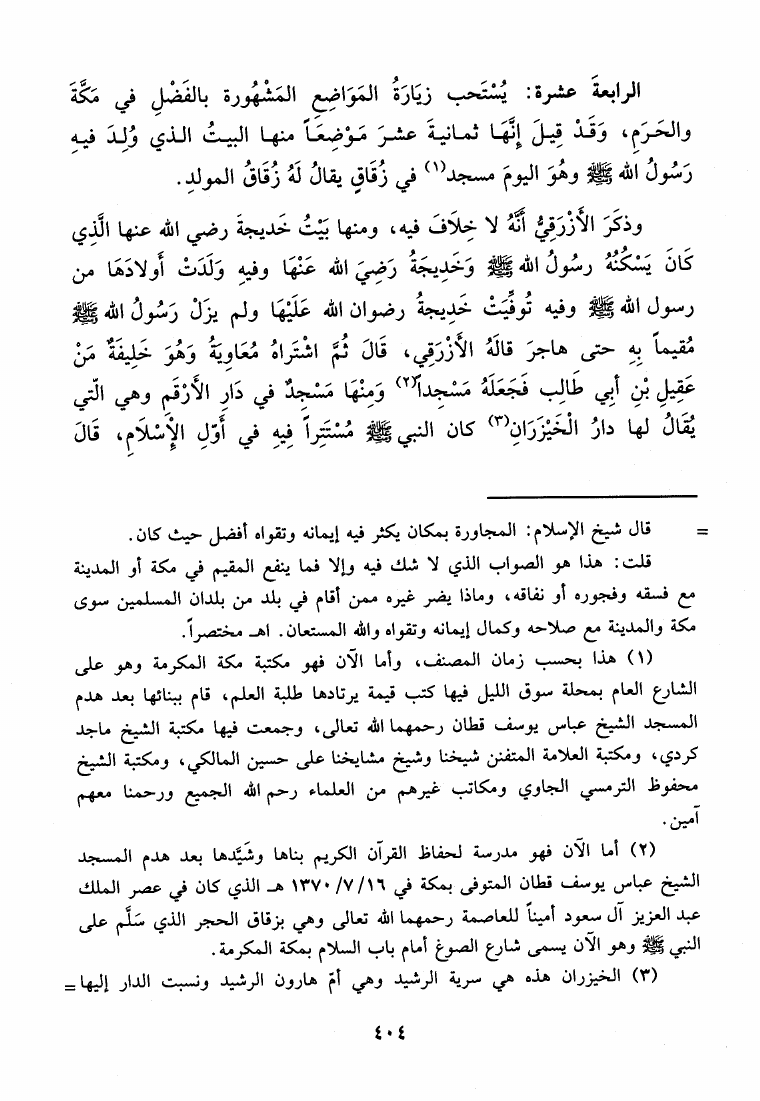 الرابعةَ عشرة: يُسْتَحب زيَارَةُ المَوَاضِعِ المَشْهُورة بالفَضْلِ في مَكَّةَ
والحَرَمِ، وَقَدْ قِيلَ إِنَّهَا ثمـانيـةَ عشـرَ مَـوْضِعَـاً منهـا البيـتُ الـذي وُلِـدَ فيـهِ
رَسُولُ الله ﷺ وهُوَ اليومَ مسجد(١) في زُقَاقٍ يقالُ لَهُ زُقَاقُ المولدِ.
وذكَرَ الأَزْرَقِيُّ أَنَّهُ لا خِلَافَ فيه، ومنها بَيْتُ خَديجةَ رضي الله عنها الَّذِي
كَانَ يَسْكُنُهُ رسولُ الله ﷺ وَخَدِيجَةُ رَضِيَ الله عَنْهَا وفيهِ وَلَدَتْ أولادَهَا من
رسول الله ﷺ وفيه تُوفِّيَتْ خَديجةُ رضوان الله عَلَيْهَا ولم يزَلْ رَسُولُ الله ﷺ
مُقيماً بِهِ حتى هاجرَ قالَهُ الأَزْرَقي، قَالَ ثُمَّ اشْتَراهُ مُعَاوِيَةُ وَهُوَ خَلِيفَةٌ مَنْ
عَقِيلِ بْنِ أبي طَالِب فَجَعَلَهُ مَسْجِداً(٢) وَمِنْهَا مَسْجِدٌ في دَارِ الأَرْقَمِ وهي الّتي
يُقَالُ لها دارُ الْخَيْزَرَانِ(٣) كان النبي ﷺ مُسْتَتِراً فِيهِ في أَوّلِ الإِسْلَامِ، قَالَ
= قال شيخ الإسلام: المجاورة بمكان يكثر فيه إيمانه وتقواه أفضل حيث كان.
قلت: هذا هو الصواب الذي لا شك فيه وإلا فما ينفع المقيم في مكة أو المدينة
مع فسقه وفجوره أو نفاقه، وماذا يضر غيره ممن أقام في بلد من بلدان المسلمين سوى
مكة والمدينة مع صلاحه وكمال إيمانه وتقواه والله المستعان. اهـ مختصراً.
(١) هذا بحسب زمان المصنف، وأما الآن فهو مكتبة مكة المكرمة وهو على
الشارع العام بمحلة سوق الليل فيها كتب قيمة يرتادها طلبة العلم، قام ببنائها بعد هدم
المسجد الشيخ عباس يوسف قطان رحمهما الله تعالى، وجمعت فيها مكتبة الشيخ ماجد
كردي، ومكتبة العلامة المتفنن شيخنا وشيخ مشايخنا على حسين المالكي، ومكتبة الشيخ
محفوظ الترمسي الجاوي ومكاتب غيرهم من العلماء رحم الله الجميع ورحمنا معهم
آمين.
(٢) أما الآن فهو مدرسة لحفاظ القرآن الكريم بناها وشَيَّدها بعد هدم المسجد
الشيخ عباس يوسف قطان المتوفى بمكة في ١٣٧٠/٧/١٦ هـ الذي كان في عصر الملك
عبد العزيز آل سعود أميناً للعاصمة رحمهما الله تعالى وهي بزقاق الحجر الذي سَلَّم على
النبي ﷺ وهو الآن يسمى شارع الصوغ أمام باب السلام بمكة المكرمة.
(٣) الخيزران هذه هي سرية الرشيد وهي أمّ هارون الرشيد ونسبت الدار إليها =
٤٠٤